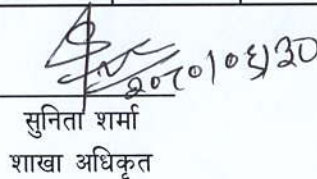 २०८०।०६।३०
सुनिता शर्मा
शाखा अधिकृत